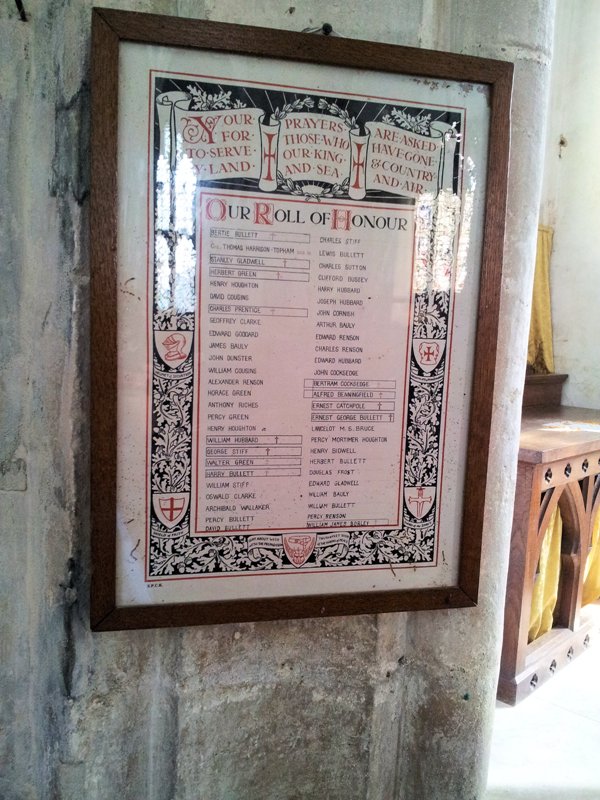 YOUR PRAYERS ARE ASKED
FOR THOSE WHO HAVE GONE
TO SERVE OUR KING & COUNTRY
BY LAND AND SEA AND AIR
OUR ROLL OF HONOUR
BERTIE BULLETT †
THOMAS HARRISON-TOPHAM
STANLEY GLADWELL †
HERBERT GREEN †
HENRY HOUGHTON
DAVID COUSINS
CHARLES PRENTICE †
GEOFFREY CLARKE
EDWARD GODDARD
JAMES BAULY
JOHN DUNSTER
WILLIAM COUSINS
ALEXANDER RENSON
HORACE GREEN
ANTHONY RICHES
PERCY GREEN
HENRY HOUGHTON
WILLIAM HUBBARD †
GEORGE STIFF †
WALTER GREEN †
HARRY BULLETT †
WILLIAM STIFF
OSWALD CLARKE
ARCHIBALD WALLAKER
PERCY BULLETT
DAVID BULLETT
CHARLES STIFF
LEWIS BULLETT
CHARLES SUTTON
CLIFFORD BUGGEY
HARRY HUBBARD
JOSEPH HUBBARD
JOHN CORNISH
ARTHUR BAULY
EDWARD RENSON
CHARLES RENSON
EDWARD HUBBARD
JOHN COCKSEDGE
BERTRAM COCKSEDGE †
ALFRED BENNINGFIELD †
ERNEST CATCHPOLE †
ERNEST GEORGE BULLETT †
LANCELOT M. S. BRUCE
PERCY MORTIMER HOUGHTON
HENRY BIDWELL
HERBERT BULLETT
DOUGLAS FROST
EDWARD GLADWELL
WILLIAM BAULY
WILLIAM BULLETT
PERCY RENSON
WILLIAM JAMES
S.P.C.K.